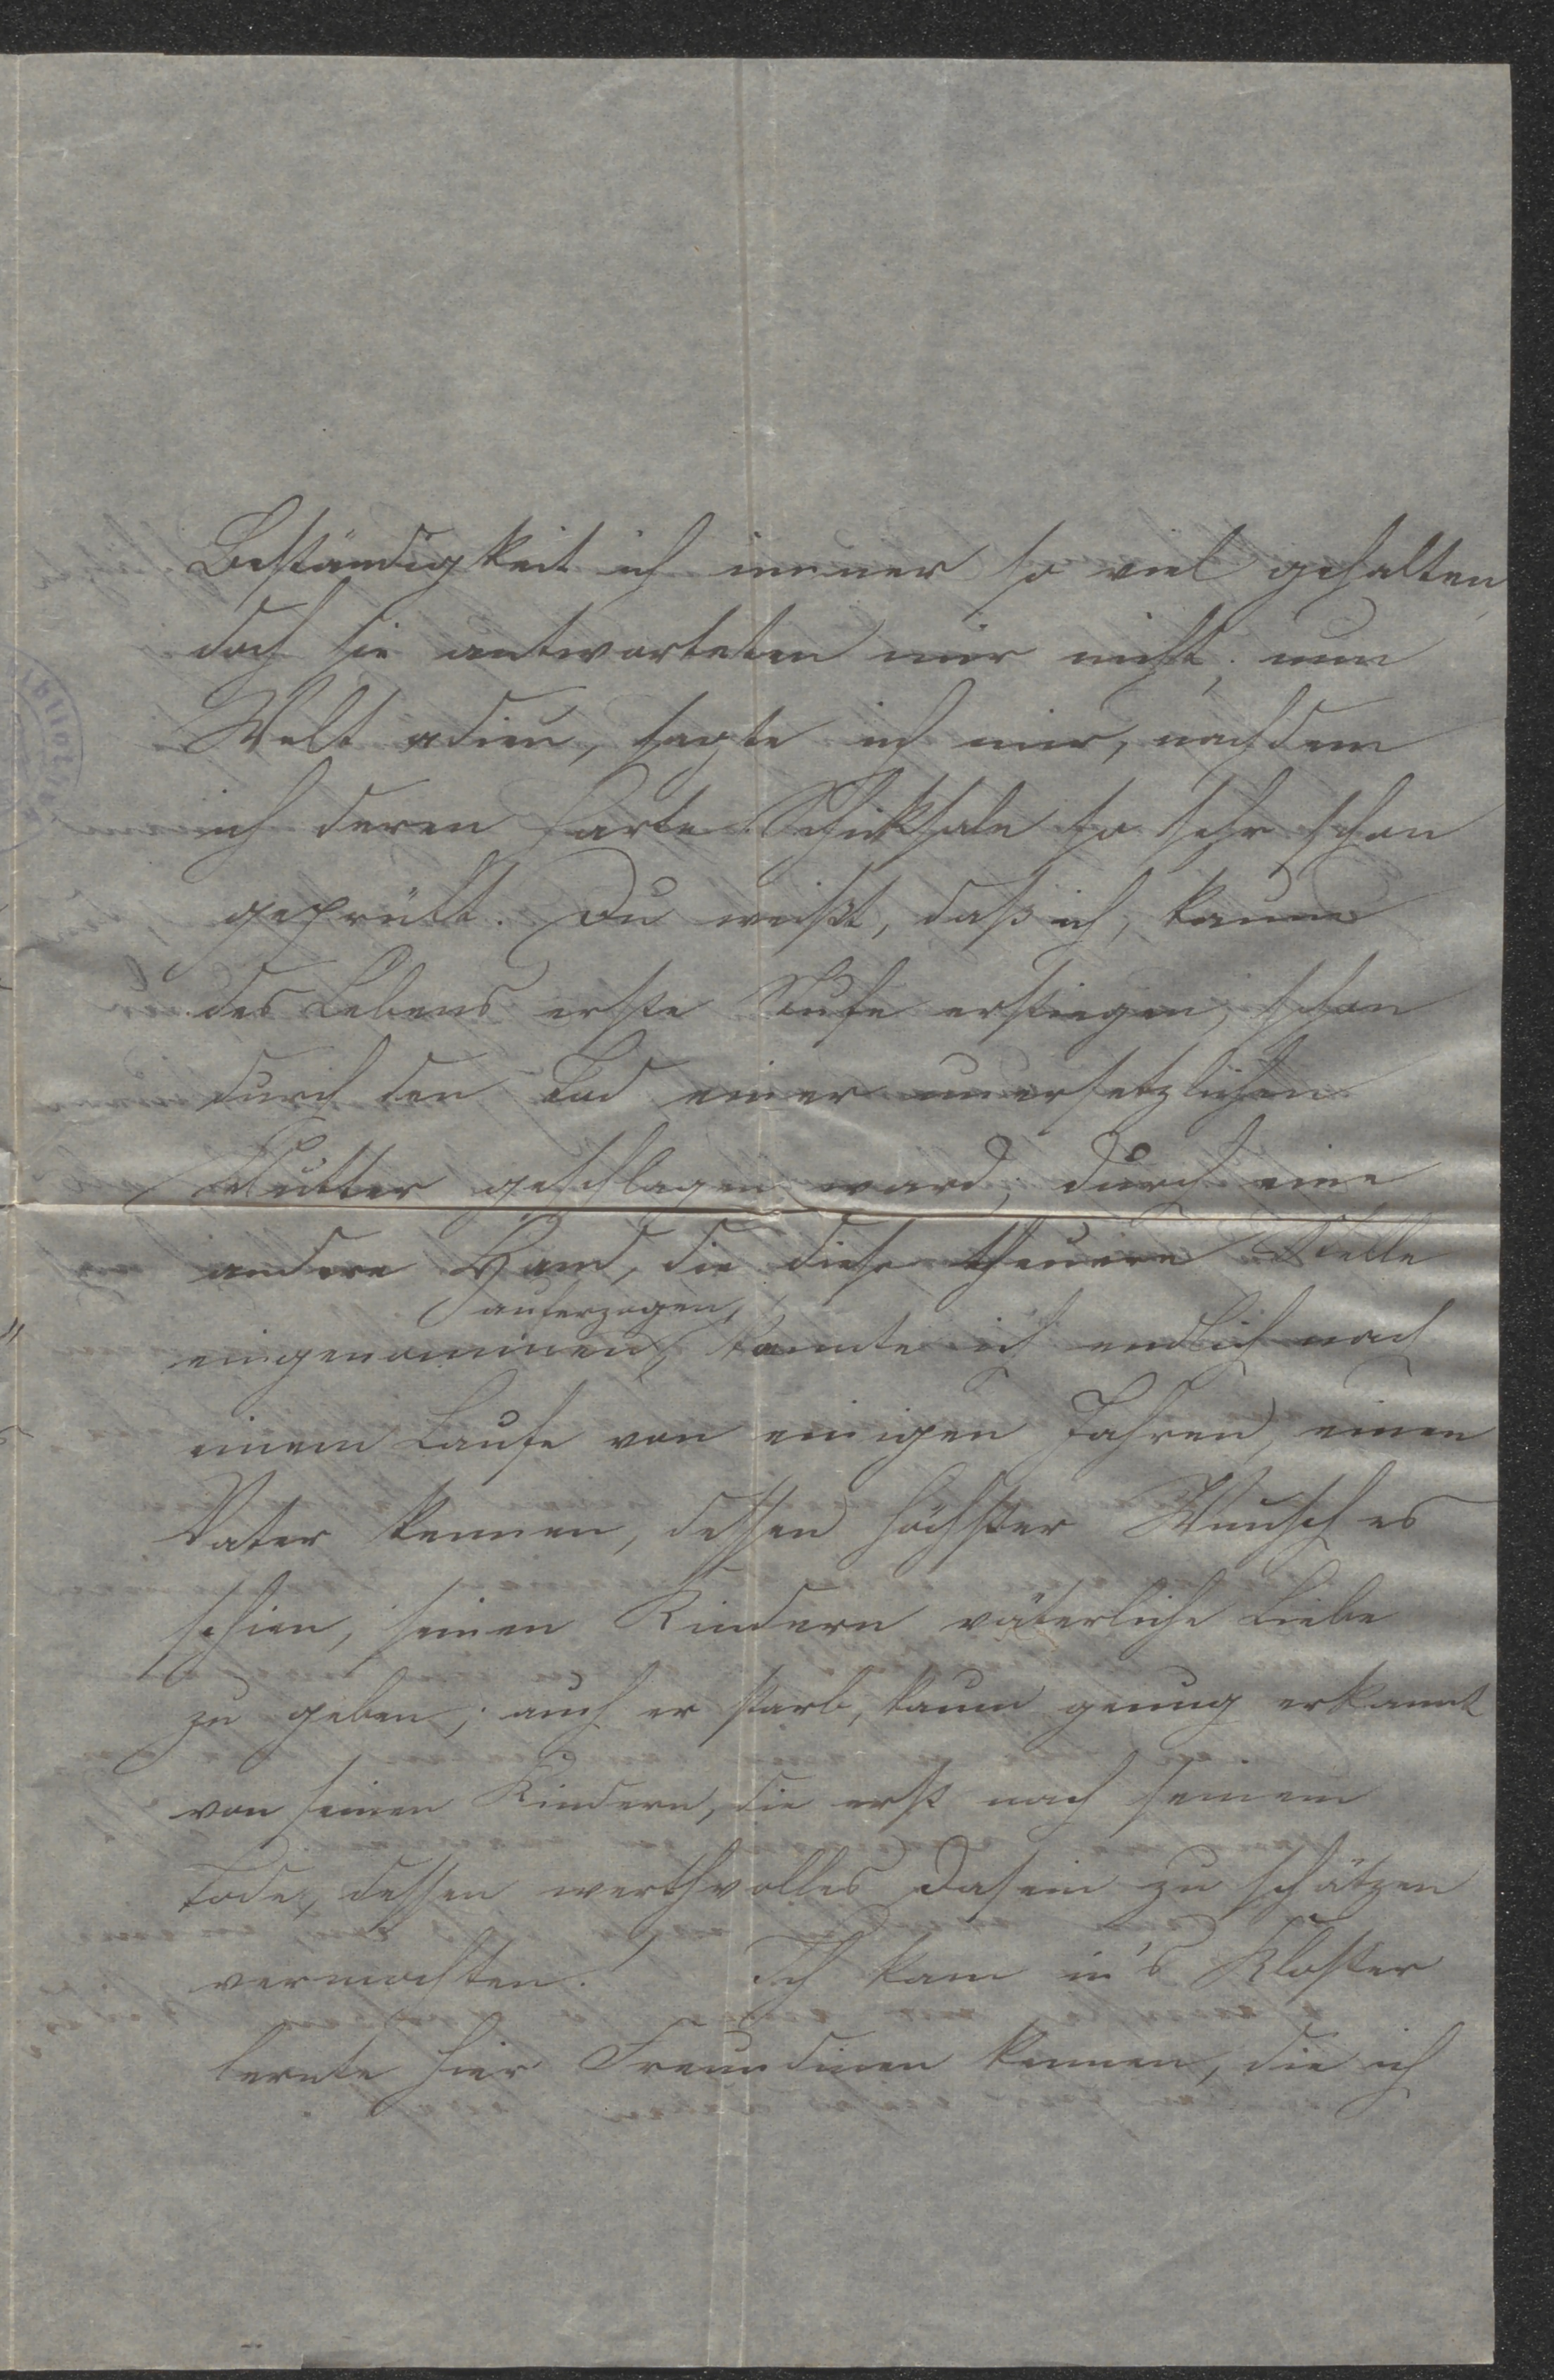 Beständigkeit ich immer so viel gehalten,
doch sie antworteten mir nicht; nun
Welt adieu, sagte ich mir, nachdem
ich deren harte Schicksale so sehr schon
geprüft. Du weißt, daß ich, kaum
des Lebens erste Stufe erstiegen, schon
durch den Tod einer unersetzlichen
Mutter geschlagen ward; durch eine
andere Hand, die diese theuere Stelle
auferzogen,
eingenommen, kannte ich endlich nach
einem Laufe von einigen Jahren, einen
Vater kennen, dessen höchster Wunsch es
schien, seinen Kindern väterliche Liebe
zu geben; auch er starb, kaum genug erkannt
von seinen Kindern, die erst nach seinem
Tode, dessen werthvolles Dasein zu schätzen
vermochten. Ich kam in's Kloster
lernte hier Freundinen kennen, die ich